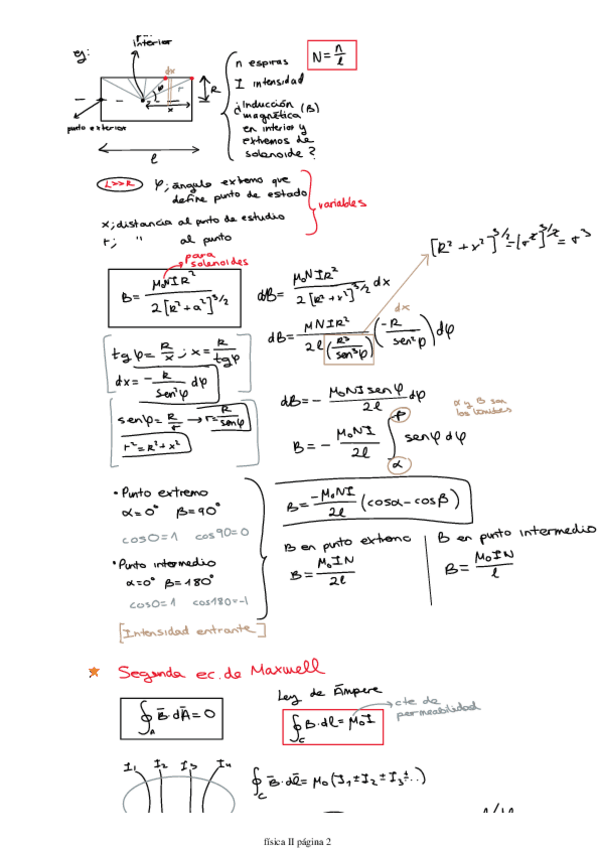 ej:
interior
punto exterior
dx
φ
r
R
x
l
n espiras
I intensidad
¿Inducción magnética (B)
en interior y
extremos de
solenoide?
N = n/l
L>>R
φ; ángulo extremo que
define punto de estado
x; distancia al punto de estudio
r; " al punto
variables
para solenoides
B = μ₀NIR²/2[R²+a²]^3/2
dB = μ₀NIR²/2[R²+x²]^3/2 dx
[R²+x²]^3/2 = [r²]^3/2 = r³
dx
dB = μNIR²/2l(R³/sen³φ) (-R/sen²φ) dφ
tgφ = R/x; x = R/tgφ
dx = -R/sen²φ dφ
senφ = R/r → r = R/senφ
r² = R² + x²
dB = - μ₀NI senφ/2l dφ
α y B son
los límites
B = - μ₀NI/2l ∫ senφ dφ
β
α
• Punto extremo
α=0° β=90°
cos0=1 cos90=0
• Punto intermedio
α=0° β=180°
cos0=1 cos180=-1
[Intensidad entrante]
B = -μ₀NI/2l (cosα - cosβ)
B en punto extremo
B = μ₀IN/2l
B en punto intermedio
B = μ₀IN/l
Segunda ec. de Maxwell
∮_A B̄·dĀ = 0
Ley de Ampere
∮_C B·dl = μ₀I
cte de
permeabilidad
I₁ I₂ I₃ I₄
∮_C B̄·dl̄ = μ₀(I₁±I₂±I₃±...)
física II página 2